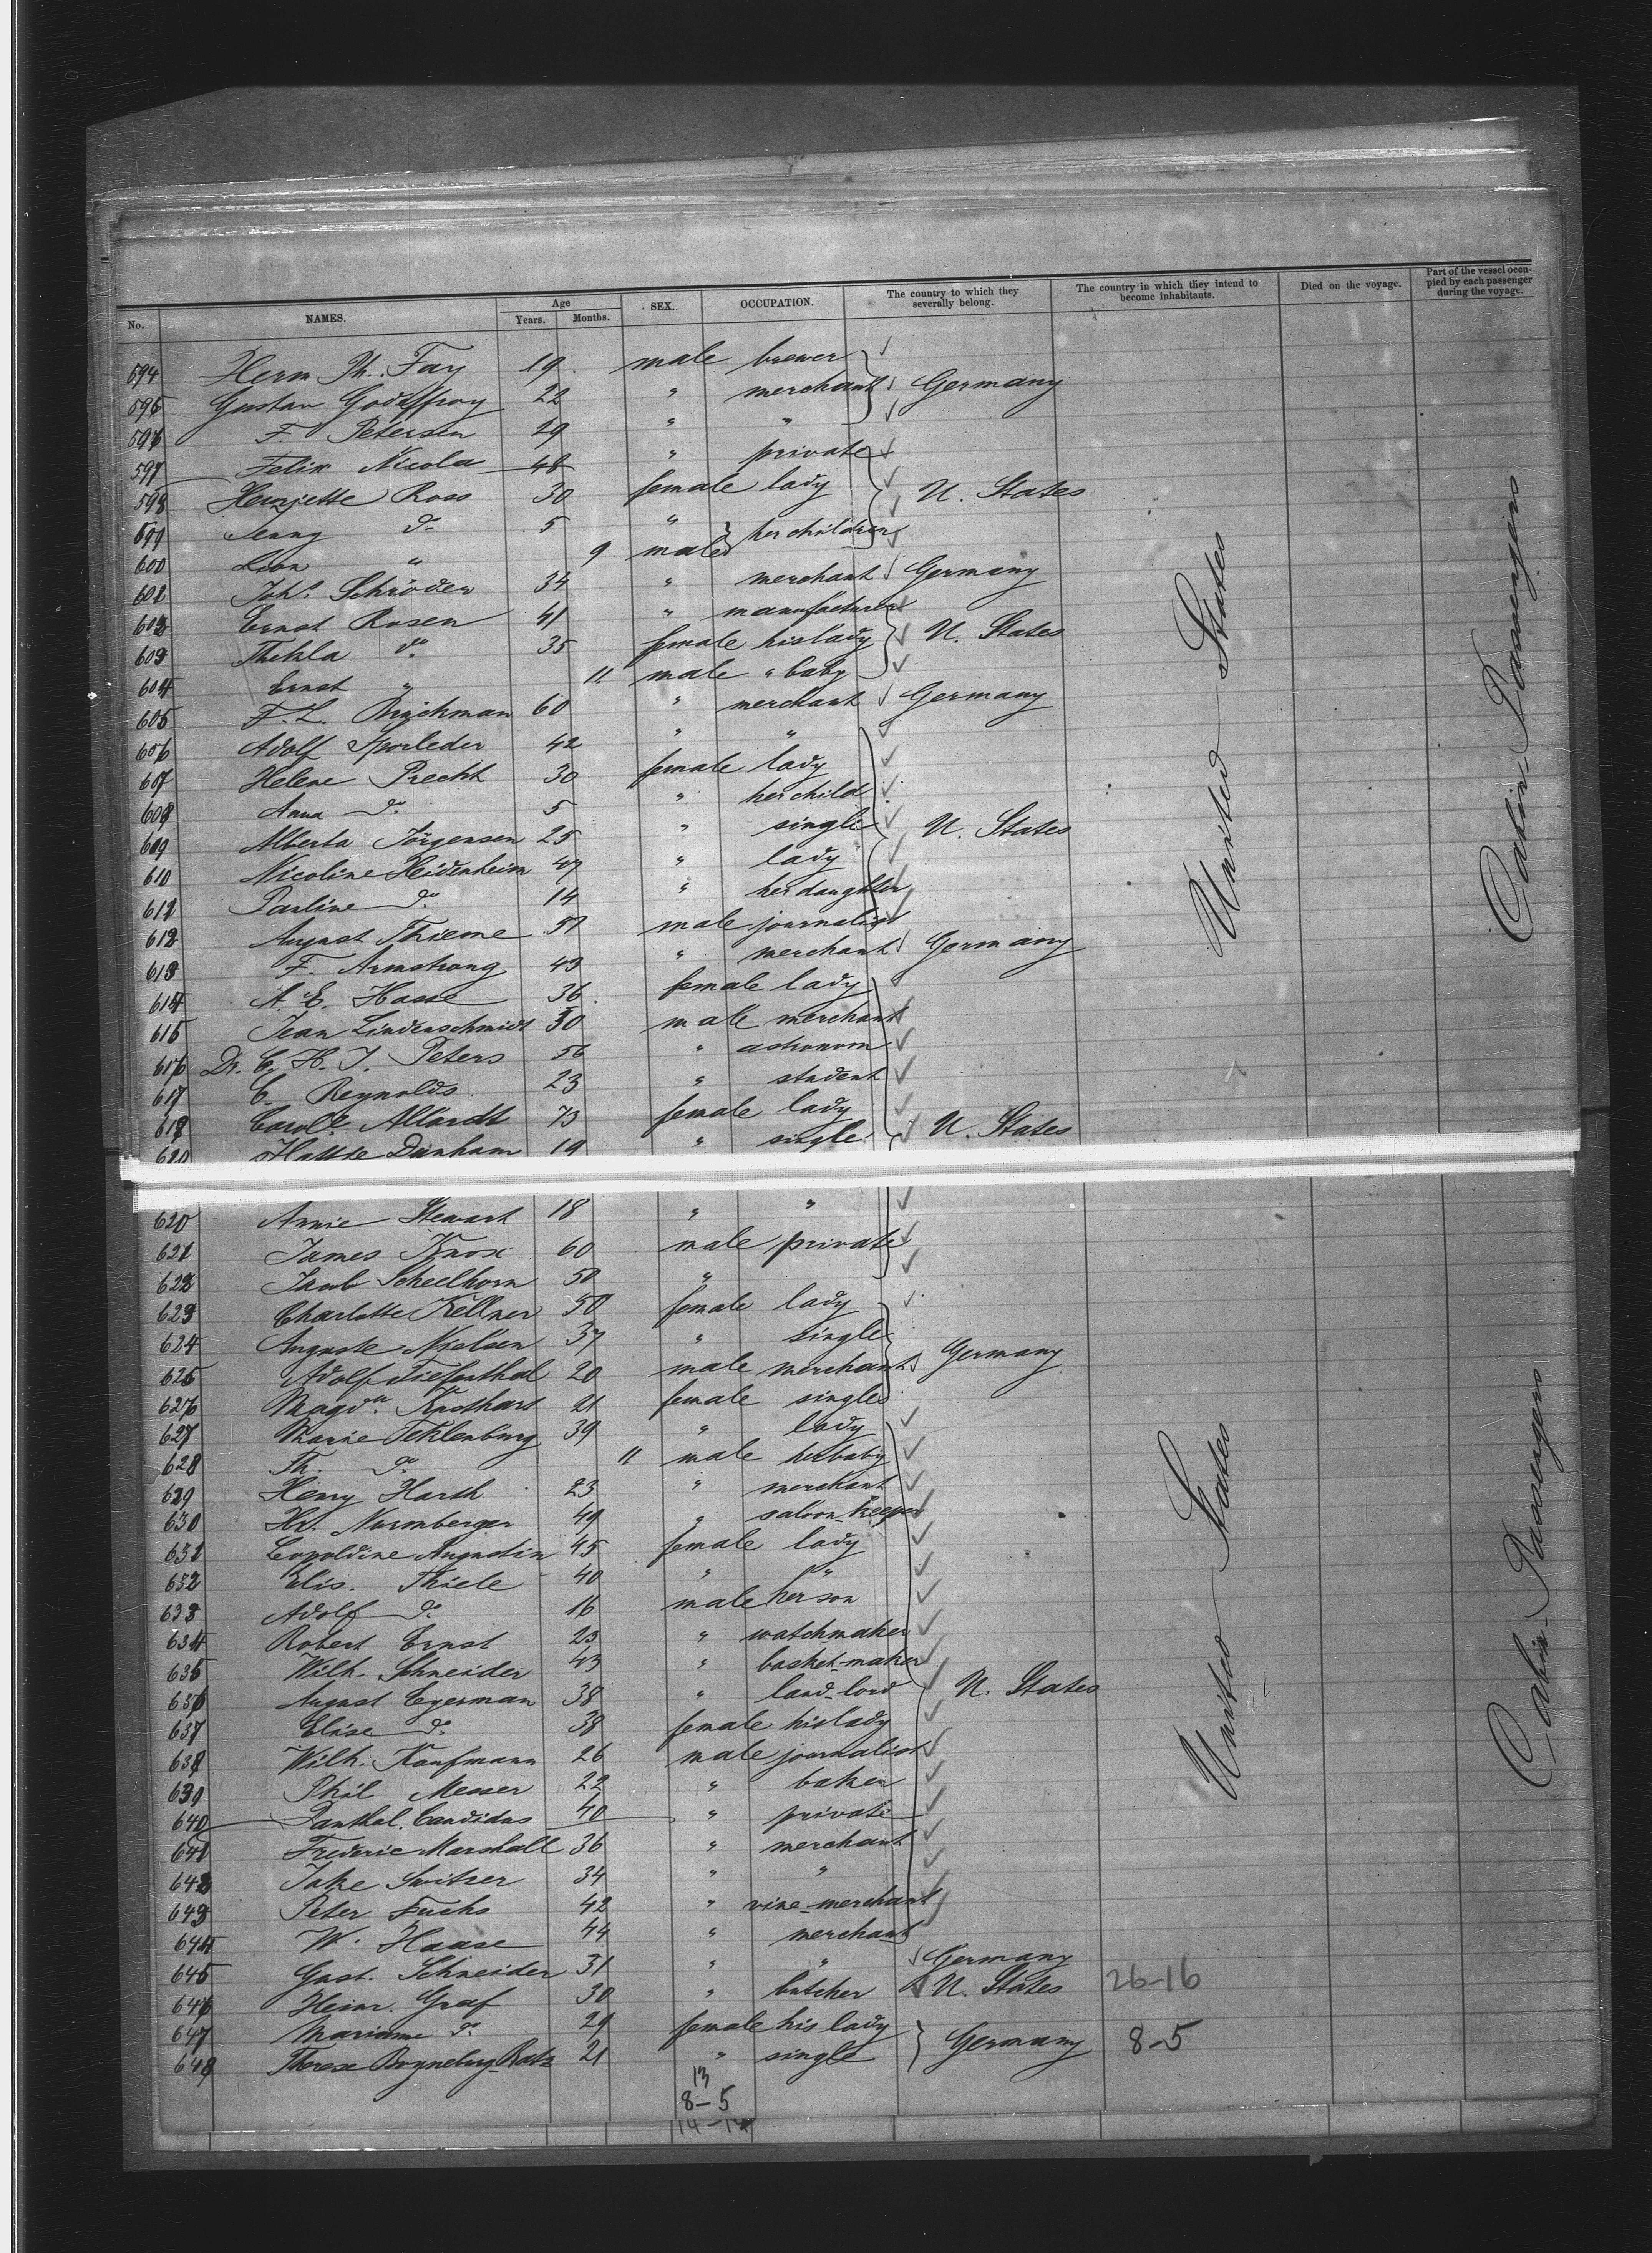 No. NAMES. Age Years. Months. SEX. OCCUPATION. The country to which they severally belong. The country in which they intend to become inhabitants. Died on the voyage. Part of the vessel occupied by each passenger during the voyage.
594 Herm Ph. Fay 19 male brewer
595 Gustav Godeffroy 22 " merchant Germany
596 F. Petersen 29 " "
597 Felix Nicola 48 " private
598 Henriette Ross 30 female lady U. States
599 Jenny do 5 " her children
600 Leon " 9 male
601 Johs. Schröder 34 " merchant Germany
602 Ernst Rosen 41 " manufacturer
603 Thekla do 35 female his lady U. States
604 Ernst " 11 male " baby
605 F. L. Brachman 60 " merchant Germany
606 Adolf Sporleder 42 " "
607 Helene Precht 30 female lady
608 Anna do 5 " her child
609 Alberta Jörgensen 25 " single U. States
610 Nicoline Heidenheim 47 " lady
611 Pauline do 14 " her daughter
612 August Thieme 51 male journalist
613 F. Armstrong 43 " merchant Germany
614 A. E. Hasse 36 female lady
615 Jean Lindenschmidt 30 male merchant
616 Dr. C. H. F. Peters 56 " astronom
617 C. Reynolds 23 " student
618 Carole Allardt 73 female lady
620 Hattie Dunham 19 " single U. States
United States
Cabin-Passengers
620 Annie Stewart 18 " "
621 James Knox 60 male private
622 Jacob Scheelhorn 50 "
623 Charlotte Kellner 50 female lady
624 Auguste Nielsen 37 " single
625 Adolf Tiefenthal 20 male merchant Germany
626 Magda. 21 female single
627 Marie Teklenburg 39 " lady
628 Th. do 11 male her baby
629 Henry Harth 23 " merchant
630 Hr. Nurmberger 49 " saloon-keeper
631 Leopoldine Augustin 45 female lady
632 Elis. Thiele 40 " "
633 Adolf do 16 male her son
634 Robert Ernst 23 " watchmaker
635 Wilh. Schneider 43 " basket-maker
636 August Egerman 38 " land-lord U. States
637 Elise do 38 female his lady
638 Wilh. Kaufmann 26 male journalist
639 Phil Messer 22 " baker
640 Panthal. Candidus 40 " private
641 Frederic Marshall 36 " merchant
642 Jake Switzer 34 " "
643 Peter Fuchs 42 " vine-merchant
644 W. Haase 44 " merchant
645 Gust. Schneider 31 " " Germany
646 Heinr. Graf 30 " butcher U. States 26-16
647 Marianne do 29 female his lady
648 Therese Boyneburg-Ratz 21 " single Germany 8-5
13
8-5
United States
Cabin-Passengers